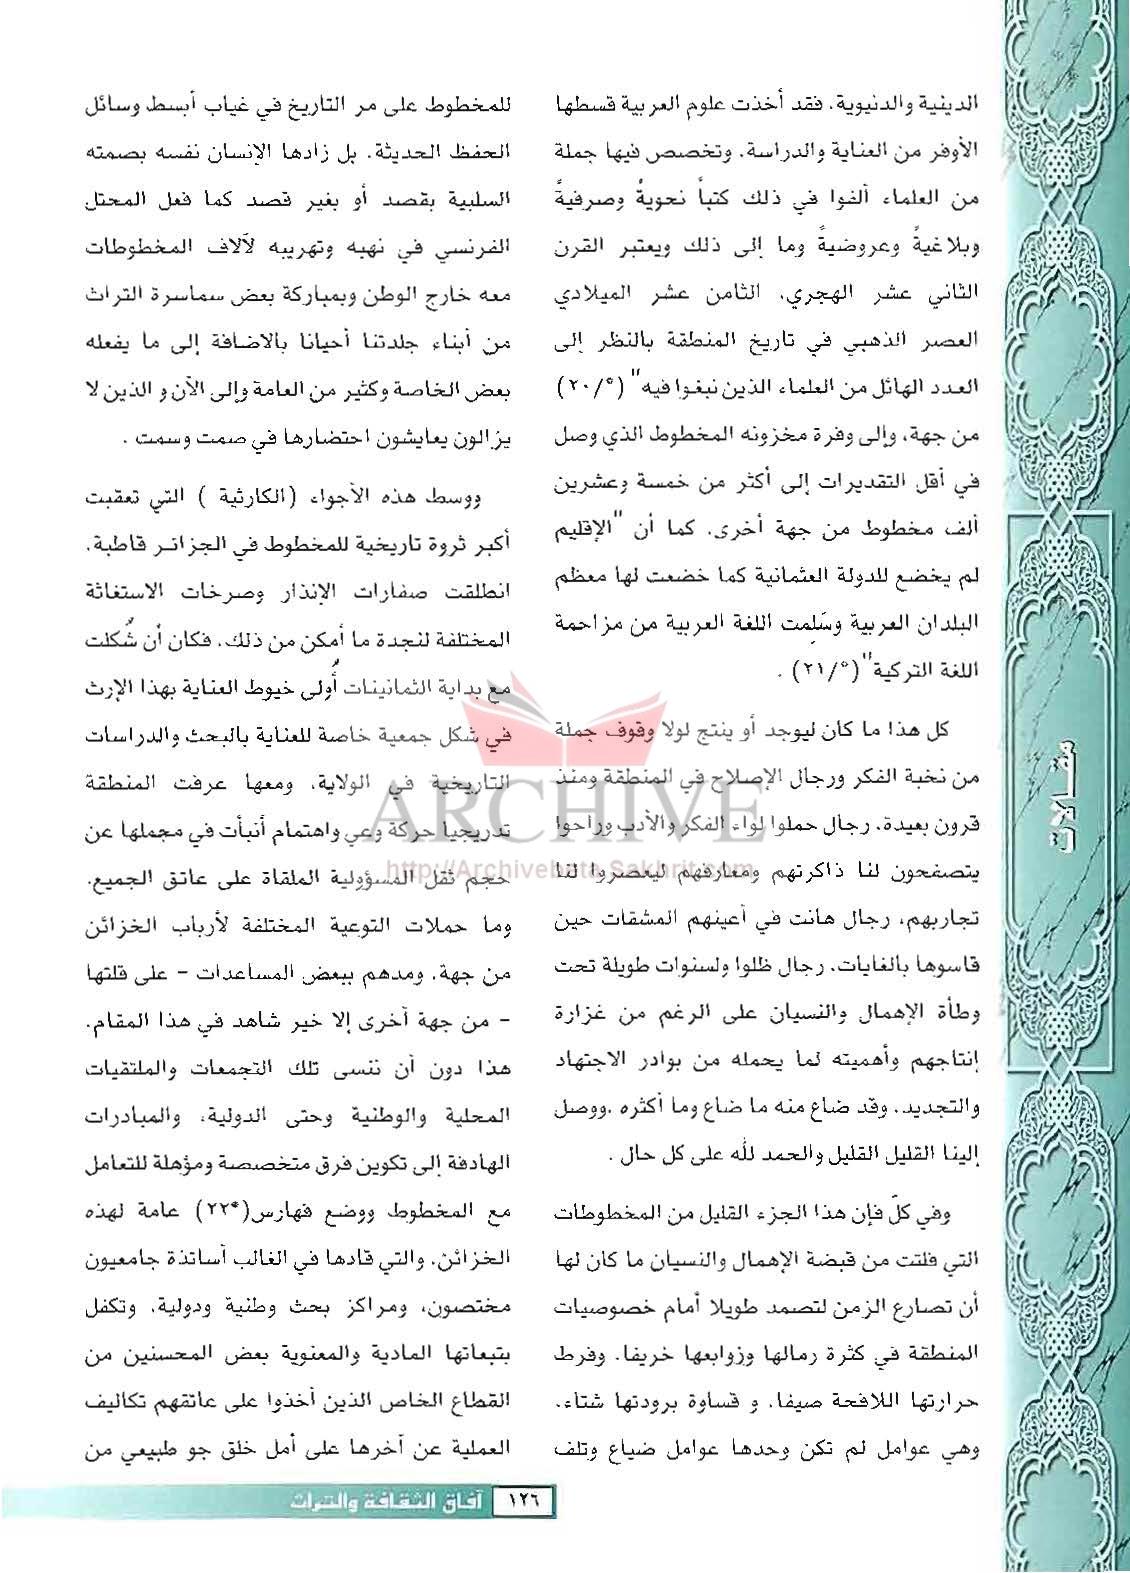 الدينية والدنيوية. فقد أخذت علوم العربية قسطها
الأوفر من العناية والدراسة. وتخصص فيها جملة
من العلماء ألفوا في ذلك كتباً نحويةً وصرفيةً
وبلاغيةً وعروضيةً وما إلى ذلك ويعتبر القرن
الثاني عشر الهجري، الثامن عشر الميلادي
العصر الذهبي في تاريخ المنطقة بالنظر إلى
العدد الهائل من العلماء الذين نبغوا فيه" (*/٢٠)
من جهة، وإلى وفرة مخزونه المخطوط الذي وصل
في أقل التقديرات إلى أكثر من خمسة وعشرين
ألف مخطوط من جهة أخرى. كما أن "الإقليم
لم يخضع للدولة العثمانية كما خضعت لها معظم
البلدان العربية وسَلِمت اللغة العربية من مزاحمة
اللغة التركية"(*/٢١) .
كل هذا ما كان ليوجد أو ينتج لولا وقوف جملة
من نخبة الفكر ورجال الإصلاح في المنطقة ومنذ
قرون بعيدة. رجال حملوا لواء الفكر والأدب وراحوا
يتصفحون لنا ذاكرتهم ومعارفهم ليعصروا لنا
تجاربهم، رجال هانت في أعينهم المشقات حين
قاسوها بالغايات. رجال ظلوا ولسنوات طويلة تحت
وطأة الإهمال والنسيان على الرغم من غزارة
إنتاجهم وأهميته لما يحمله من بوادر الاجتهاد
والتجديد. وقد ضاع منه ما ضاع وما أكثره .ووصل
إلينا القليل القليل والحمد لله على كل حال .
وفي كلّ فإن هذا الجزء القليل من المخطوطات
التي فلتت من قبضة الإهمال والنسيان ما كان لها
أن تصارع الزمن لتصمد طويلا أمام خصوصيات
المنطقة في كثرة رمالها وزوابعها خريفا. وفرط
حرارتها اللافحة صيفا. و قساوة برودتها شتاء.
وهي عوامل لم تكن وحدها عوامل ضياع وتلف
للمخطوط على مر التاريخ في غياب أبسط وسائل
الحفظ الحديثة. بل زادها الإنسان نفسه بصمته
السلبية بقصد أو بغير قصد كما فعل المحتل
الفرنسي في نهبه وتهريبه لآلاف المخطوطات
معه خارج الوطن وبمباركة بعض سماسرة التراث
من أبناء جلدتنا أحيانا بالاضافة إلى ما يفعله
بعض الخاصة وكثير من العامة وإلى الآن و الذين لا
يزالون يعايشون احتضارها في صمت وسمت .
ووسط هذه الأجواء (الكارثية ) التي تعقبت
أكبر ثروة تاريخية للمخطوط في الجزائر قاطبة.
انطلقت صفارات الإنذار وصرخات الاستغاثة
المختلفة لنجدة ما أمكن من ذلك. فكان أن شُكلت
مع بداية الثمانينات أُولى خيوط العناية بهذا الإرث
في شكل جمعية خاصة للعناية بالبحث والدراسات
التاريخية في الولاية. ومعها عرفت المنطقة
تدريجيا حركة وعي واهتمام أنبأت في مجملها عن
حجم ثقل المسؤولية الملقاة على عاتق الجميع.
وما حملات التوعية المختلفة لأرباب الخزائن
من جهة. ومدهم ببعض المساعدات – على قلتها
– من جهة أخرى إلا خير شاهد في هذا المقام.
هذا دون أن ننسى تلك التجمعات والملتقيات
المحلية والوطنية وحتى الدولية، والمبادرات
الهادفة إلى تكوين فرق متخصصة ومؤهلة للتعامل
مع المخطوط ووضع فهارس(*٢٢) عامة لهذه
الخزائن. والتي قادها في الغالب أساتذة جامعيون
مختصون، ومراكز بحث وطنية ودولية. وتكفل
بتبعاتها المادية والمعنوية بعض المحسنين من
القطاع الخاص الذين أخذوا على عاتقهم تكاليف
العملية عن آخرها على أمل خلق جو طبيعي من
مقالات
ARCHIVE
http://Archivebeta.Sakhrit.com
١٢٦ آفاق الثقافة والتراث